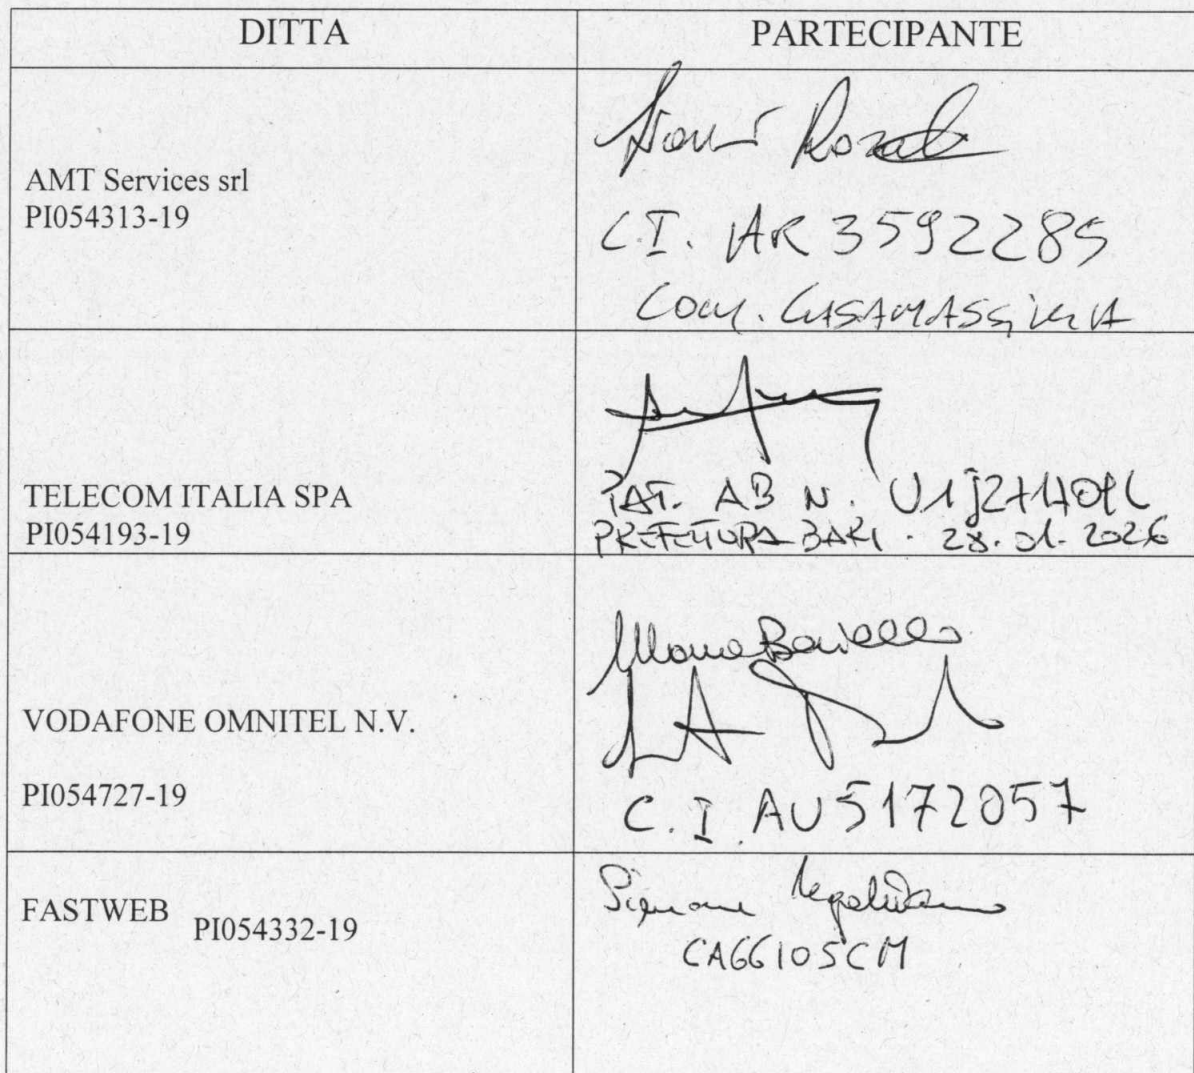 DITTA
PARTECIPANTE
AMT Services srl
PI054313-19
C.I. AR 3592285
COM. CASAMASSIMA
TELECOM ITALIA SPA
PI054193-19
PAT. AB N.
PREFETTURA BARI . 28.01.2026
VODAFONE OMNITEL N.V.
PI054727-19
C.I. AU5172057
FASTWEB
PI054332-19
Simone
CA66105CM